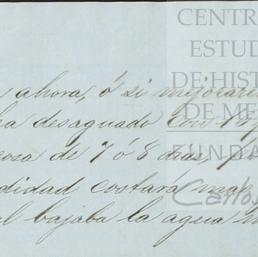 CENTRO
ESTUD
DE HIST
DE ME
FUNDA
Carlos
ahora, ó si mejorar
ha desaguado con
cosa de 7 ó 8 dias,
didad costará mas
al bajaba la agua